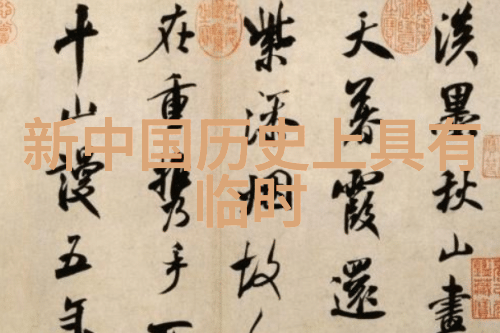 新中国历史上具有
临时
淡墨秋山畫
天暮霞還
紫添烟故
在重攜手
平山謾五年